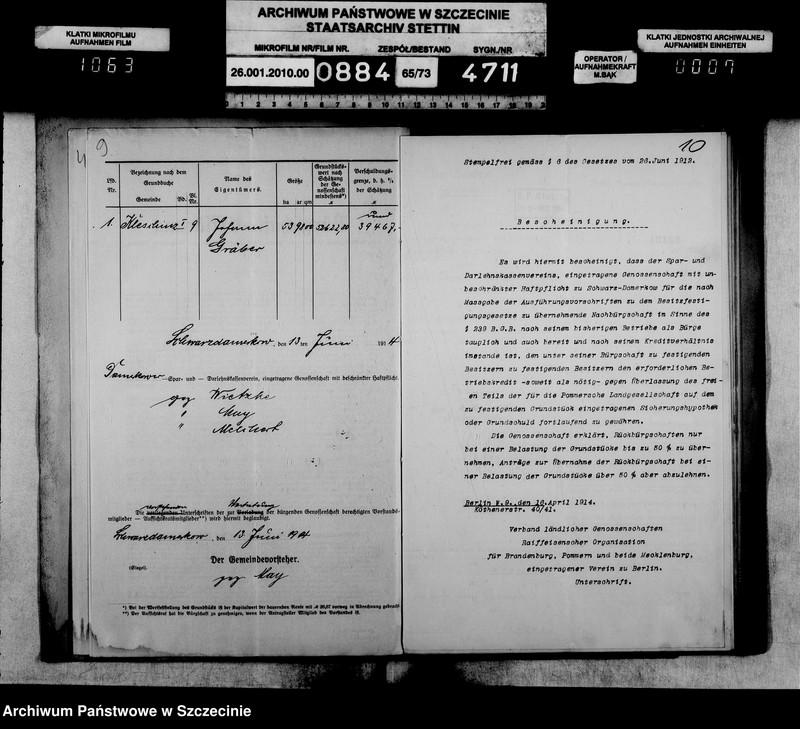 ARCHIWUM PAŃSTWOWE W SZCZECINIE
STAATSARCHIV STETTIN
KLATKI MIKROFILMU
AUFNAHMEN FILM
1063
MIKROFILM NR/FILM NR.
ZESPÓŁ/BESTAND
SYGN./NR
26.001.2010.00
0884
65/73
4711
OPERATOR /
AUFNAHMEKRAFT
M.BĄK
KLATKI JEDNOSTKI ARCHIWALNEJ
AUFNAHMEN EINHEITEN
0007
9
Lfd.
Nr.
Bezeichnung nach dem
Grundbuche
Gemeinde
Bd.
Bl.
Nr.
Name des
Eigentümers.
Größe
ha ar qm
Grundstücks-
wert nach
Schätzung
der Ge-
nossenschaft
mindestens*)
ℳ
Verschuldungs-
grenze, d. h. ¾
der Schätzung
ℳ
1.
I
9
Johann
Gräber
rund
39467,-
Schwarzdamerkow, den 13 ten Juni 1914
Damerkower Spar- und — Darlehnskassenverein, eingetragene Genossenschaft mit beschränkter Haftpflicht.
gez Wietzke
" May
"
Vertretung
Die Unterschriften der zur der bürgenden Genossenschaft berechtigten Vorstands-
mitglieder — Aufsichtsratsmitglieder**) wird hiermit beglaubigt.
Schwarzdamerkow, den 13. Juni 1914
Der Gemeindevorsteher.
(Siegel).
gez May
*) Bei der Wertfeststellung des Grundstücks ist der Kapitalwert der dauernden Rente mit
**) Der Aufsichtsrat hat die Bürgschaft zu genehmigen, wenn der Antragsteller Mitglied des Vorstandes ist.
10
Stempelfrei gemäss § 6 des Gesetzes vom 26.Juni 1912.
Bescheinigung.
Es wird hiermit bescheinigt, dass der Spar- und
Darlehnskassenvereins, eingetragene Genossenschaft mit un-
beschränkter Haftpflicht zu Schwarz-Damerkow für die nach
Massgabe der Ausführungsvorschriften zu dem Besitzfesti-
gungsgesetze zu übernehmende Nachbürgschaft im Sinne des
§ 239 B.G.B. nach seinem bisherigen Betriebe als Bürge
tauglich und auch bereit und nach seinem Kreditverhältnis
imstande ist, den unter seiner Bürgschaft zu festigenden
Besitzern zu festigenden Besitzern den erforderlichen Be-
triebskredit -soweit als nötig- gegen Überlassung des frei-
en Teils der für die Pommersche Landgesellschaft auf dem
zu festigenden Grundstück eingetragenen Sicherungshypothek
oder Grundschuld fortlaufend zu gewähren.
Die Genossenschaft erklärt, Rückbürgschaften nur
bei einer Belastung der Grundstücke bis zu 50 % zu über-
nehmen, Anträge zur Übernahme der Rückbürgschaft bei ei-
ner Belastung der Grundstücke über 50 % aber abzulehnen.
Berlin W.9., den 16.April 1914.
Köthenerstr. 40/41.
Verband ländlicher Genossenschaften
Raiffeisenscher Organisation
für Brandenburg, Pommern und beide Mecklenburg,
eingetragener Verein zu Berlin.
Unterschrift.
Archiwum Państwowe w Szczecinie